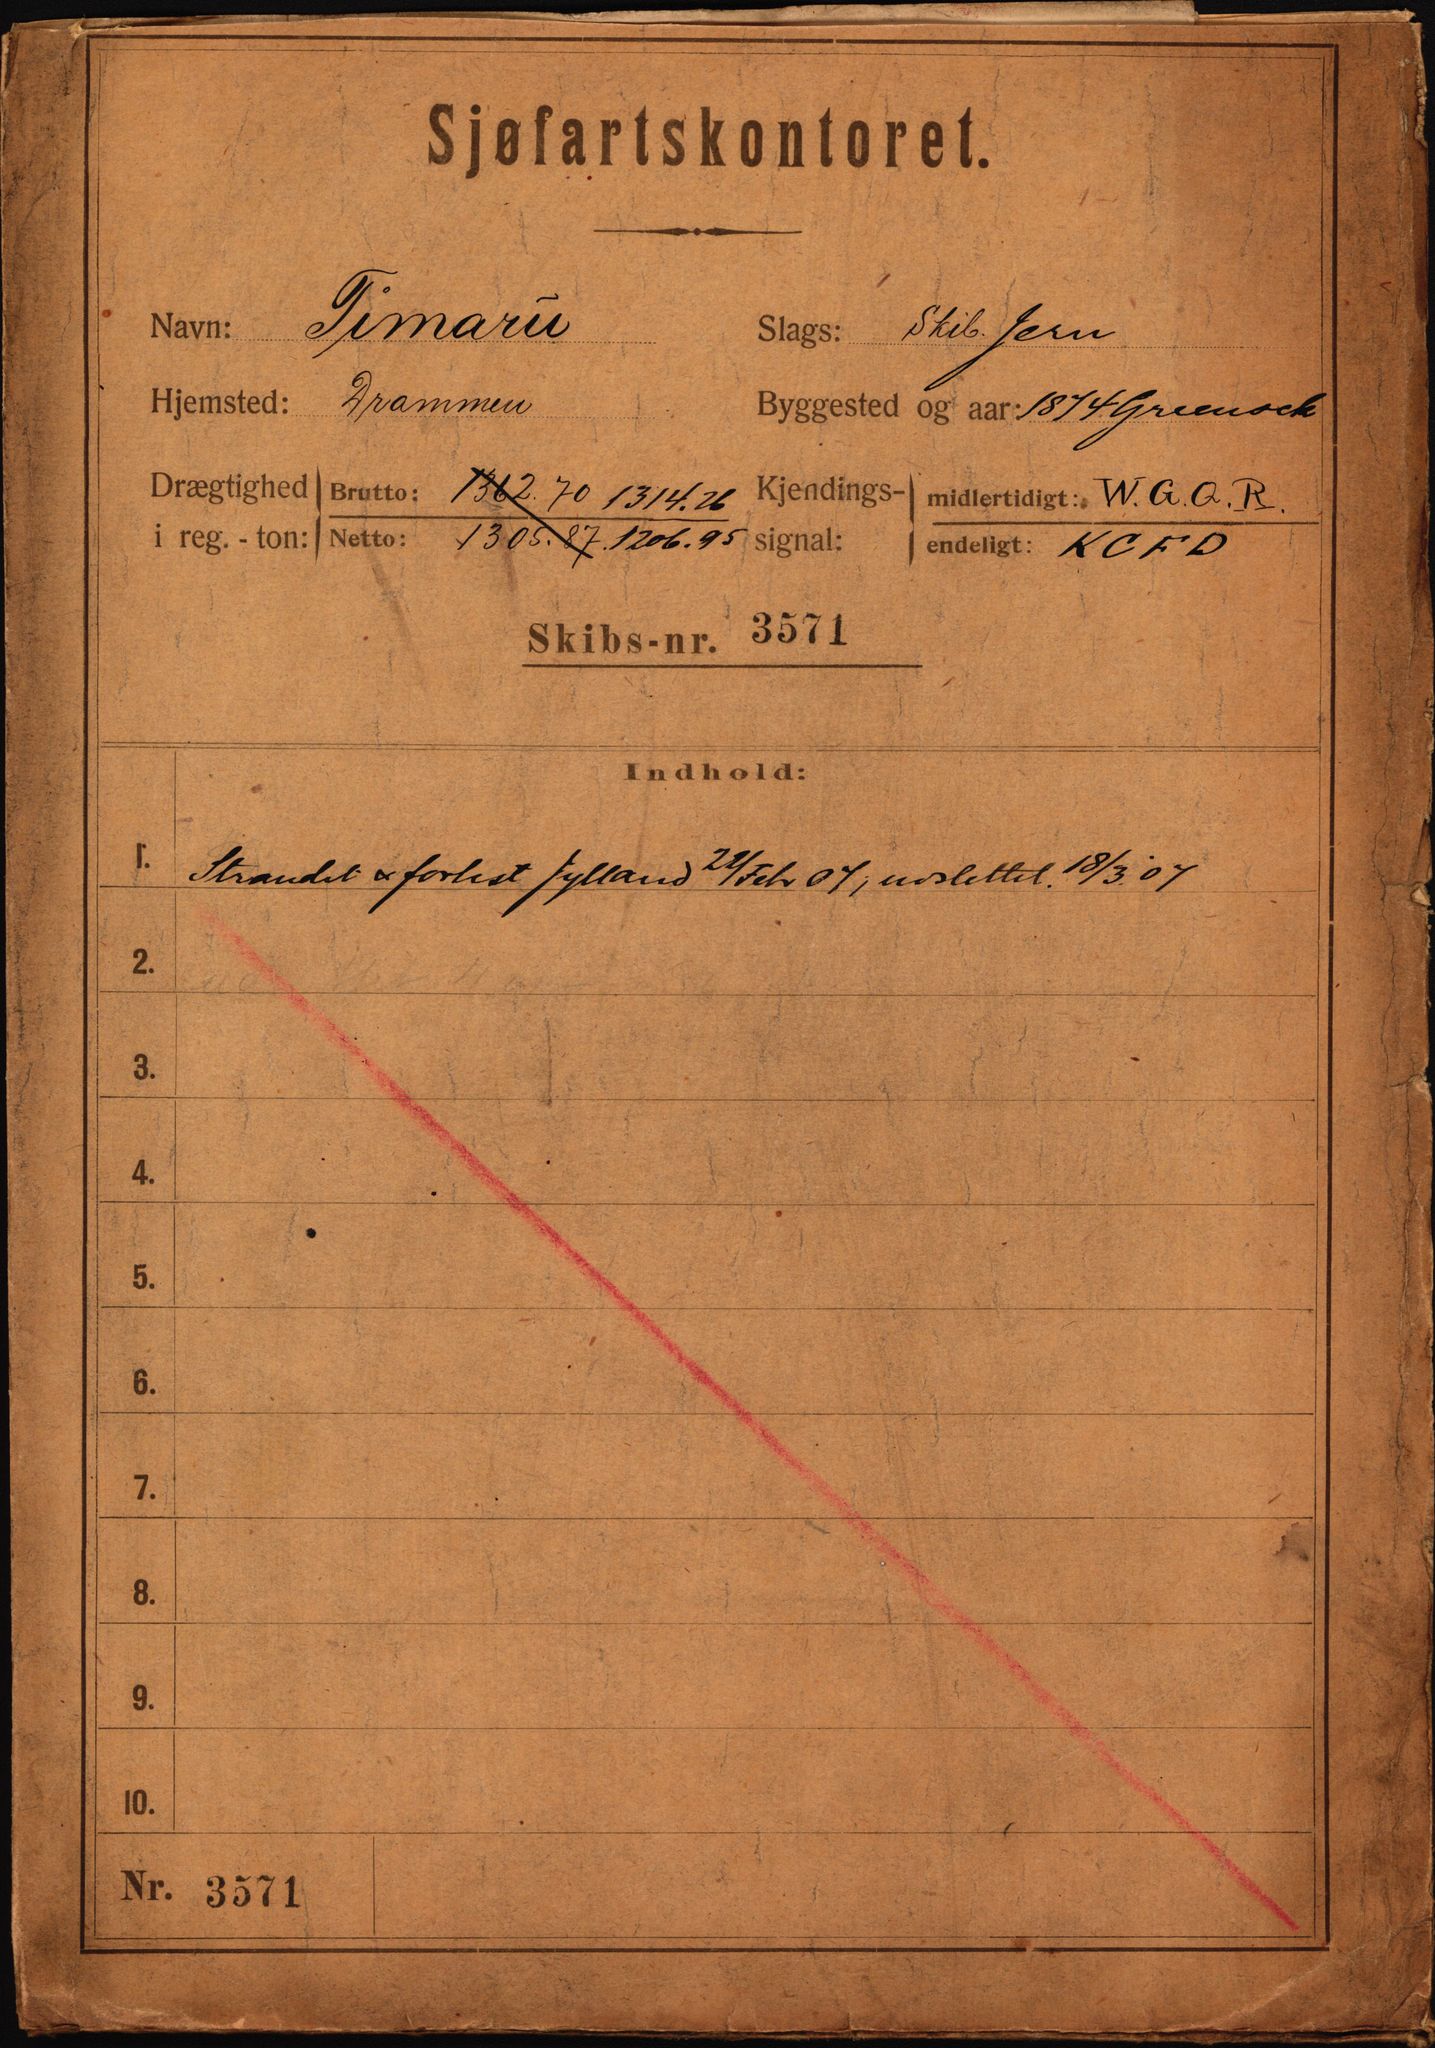 Sjøfartskontoret.
Navn: Timarŭ Slags: Skib. Jern
Hjemsted: Drammen Byggested og aar: 1874 Greenock
Drægtighed Brutto: 1362.70 1314.26 Kjendings- midlertidigt: W.G.Q.R.
i reg. - ton: Netto: 1305.87. 1206.95 signal: endeligt: KCFD
Skibs-nr. 3571
Indhold:
1. Strandet & forlist Jylland 22/Feb 07; udslettet. 18/3.07
2.
3.
4.
5.
6.
7.
8.
9.
10.
Nr. 3571